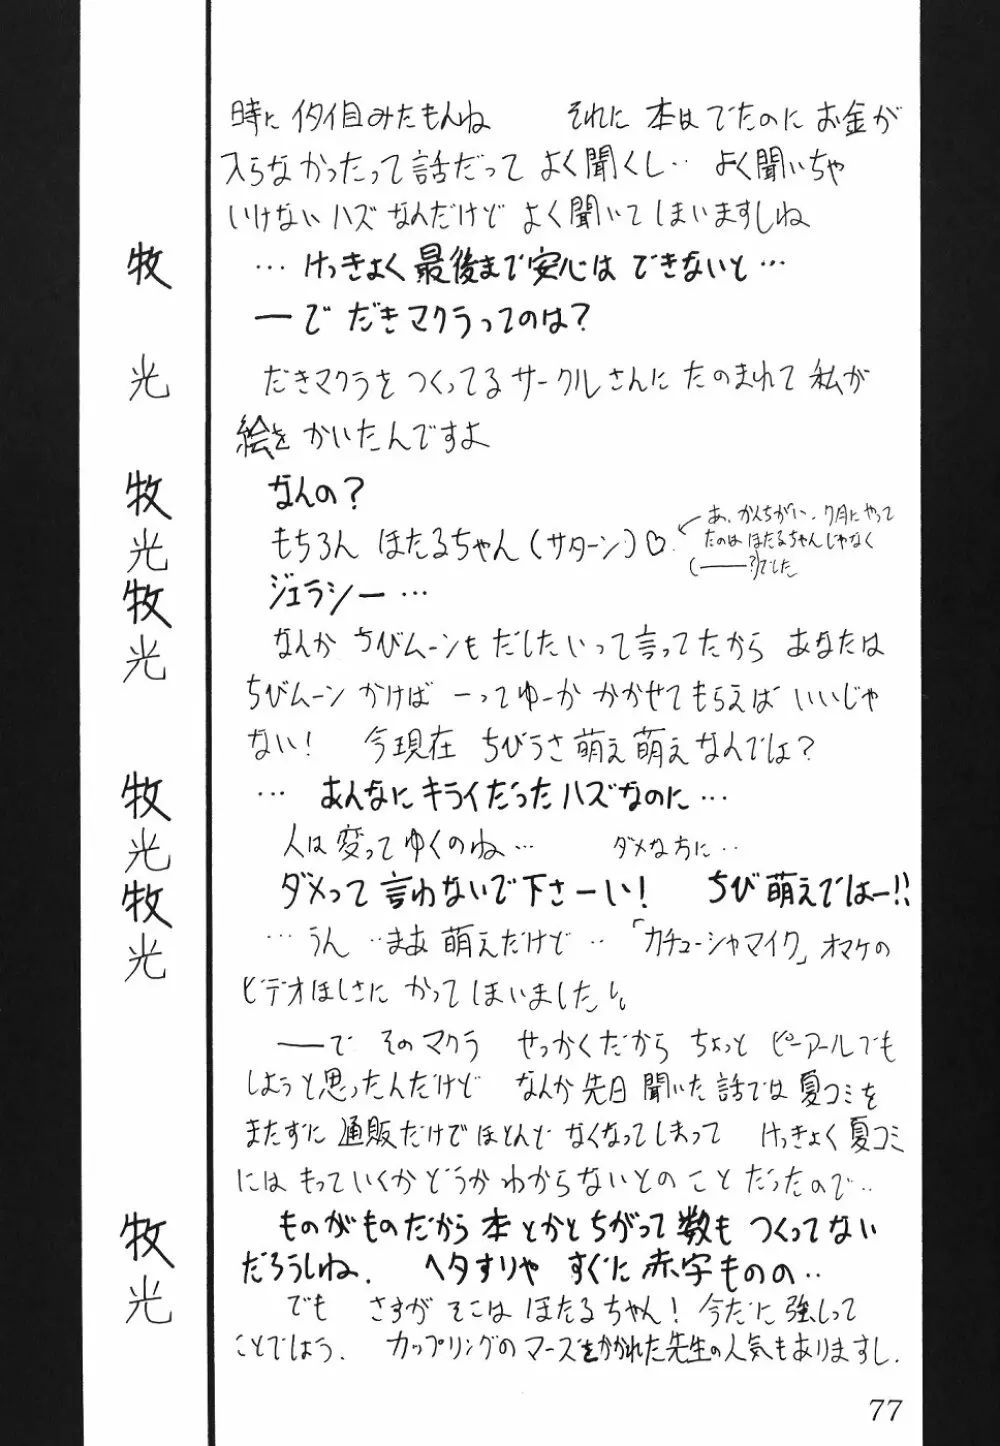 時に イタイ目みたもんね　それに 本は でたのに お金が
入らなかったって 話だって よく聞くし‥ よく聞いちゃ
いけない ハズ なんだけど よく聞いてしまいますしね
牧 … けっきょく 最後まで 安心は できないと…
ーで だきマクラってのは?
光 だきマクラを つくってる サークルさんに たのまれて 私が
絵を かいたんですよ
牧 なんの?
光 もちろん ほたるちゃん (サターン) ♡
← あ、かんちがい、7月に やって
たのは ほたるちゃんじゃなく
(――?)でした
牧 ジェラシー…
光 なんか ちびムーンも だしたいって 言ってたから あなたは
ちびムーン かけば ーってゆーか かかせて もらえば いいじゃ
ない! 今現在 ちびうさ 萌え萌え なんでは?
牧 … あんなに キライだった ハズなのに…
光 人は 変って ゆくのね… ダメな方に‥
牧 ダメって 言わないで 下さーい! ちび 萌えではー!!
光 …うん ‥まあ 萌えだけど‥「カチューシャマイク」オマケの
ビデオほしさに かってしまいましたし。
――で そのマクラ せっかくだから ちょっと ピーアールでも
しようと思ったんだけど なんか 先日 聞いた 話では 夏コミを
またずに 通販だけで ほとんど なくなってしまって けっきょく 夏コミ
には もっていくか どうか わからない との ことだったので‥
牧 ものがものだから 本とかと ちがって 数も つくってない
だろうしね. ヘタすりゃ すぐに 赤字ものの‥
光 でも さすが そこは ほたるちゃん! 今だに 強しって
ことでしょう. カップリングの マーズをかかれた 先生の 人気も ありますし.
77